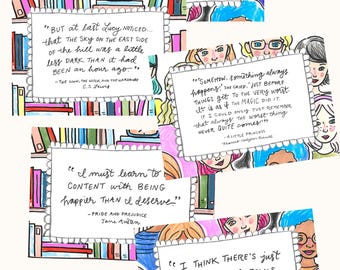 "BUT at last Lucy NOTICED
that THE SKY ON THE EAST SIDE
of the hill WAS A little
less DARK THAN it HAD
BEEN an hour ago."
C.S. Lewis
"SOMEHOW, something always
happens," SHE CRIED, "JUST before
THINGS get TO THE VERY WORST.
IT IS AS if THE MAGIC DID IT.
IF I COULD only JUST REMEMBER
that ALWAYS. THE worst THING
NEVER QUITE COMES."
A LITTLE PRINCESS
"I must learn to
CONTENT with BEING
happier THAN I deserve."
-PRIDE AND PREJUDICE
Jane Austen
"I THINK THERE'S just